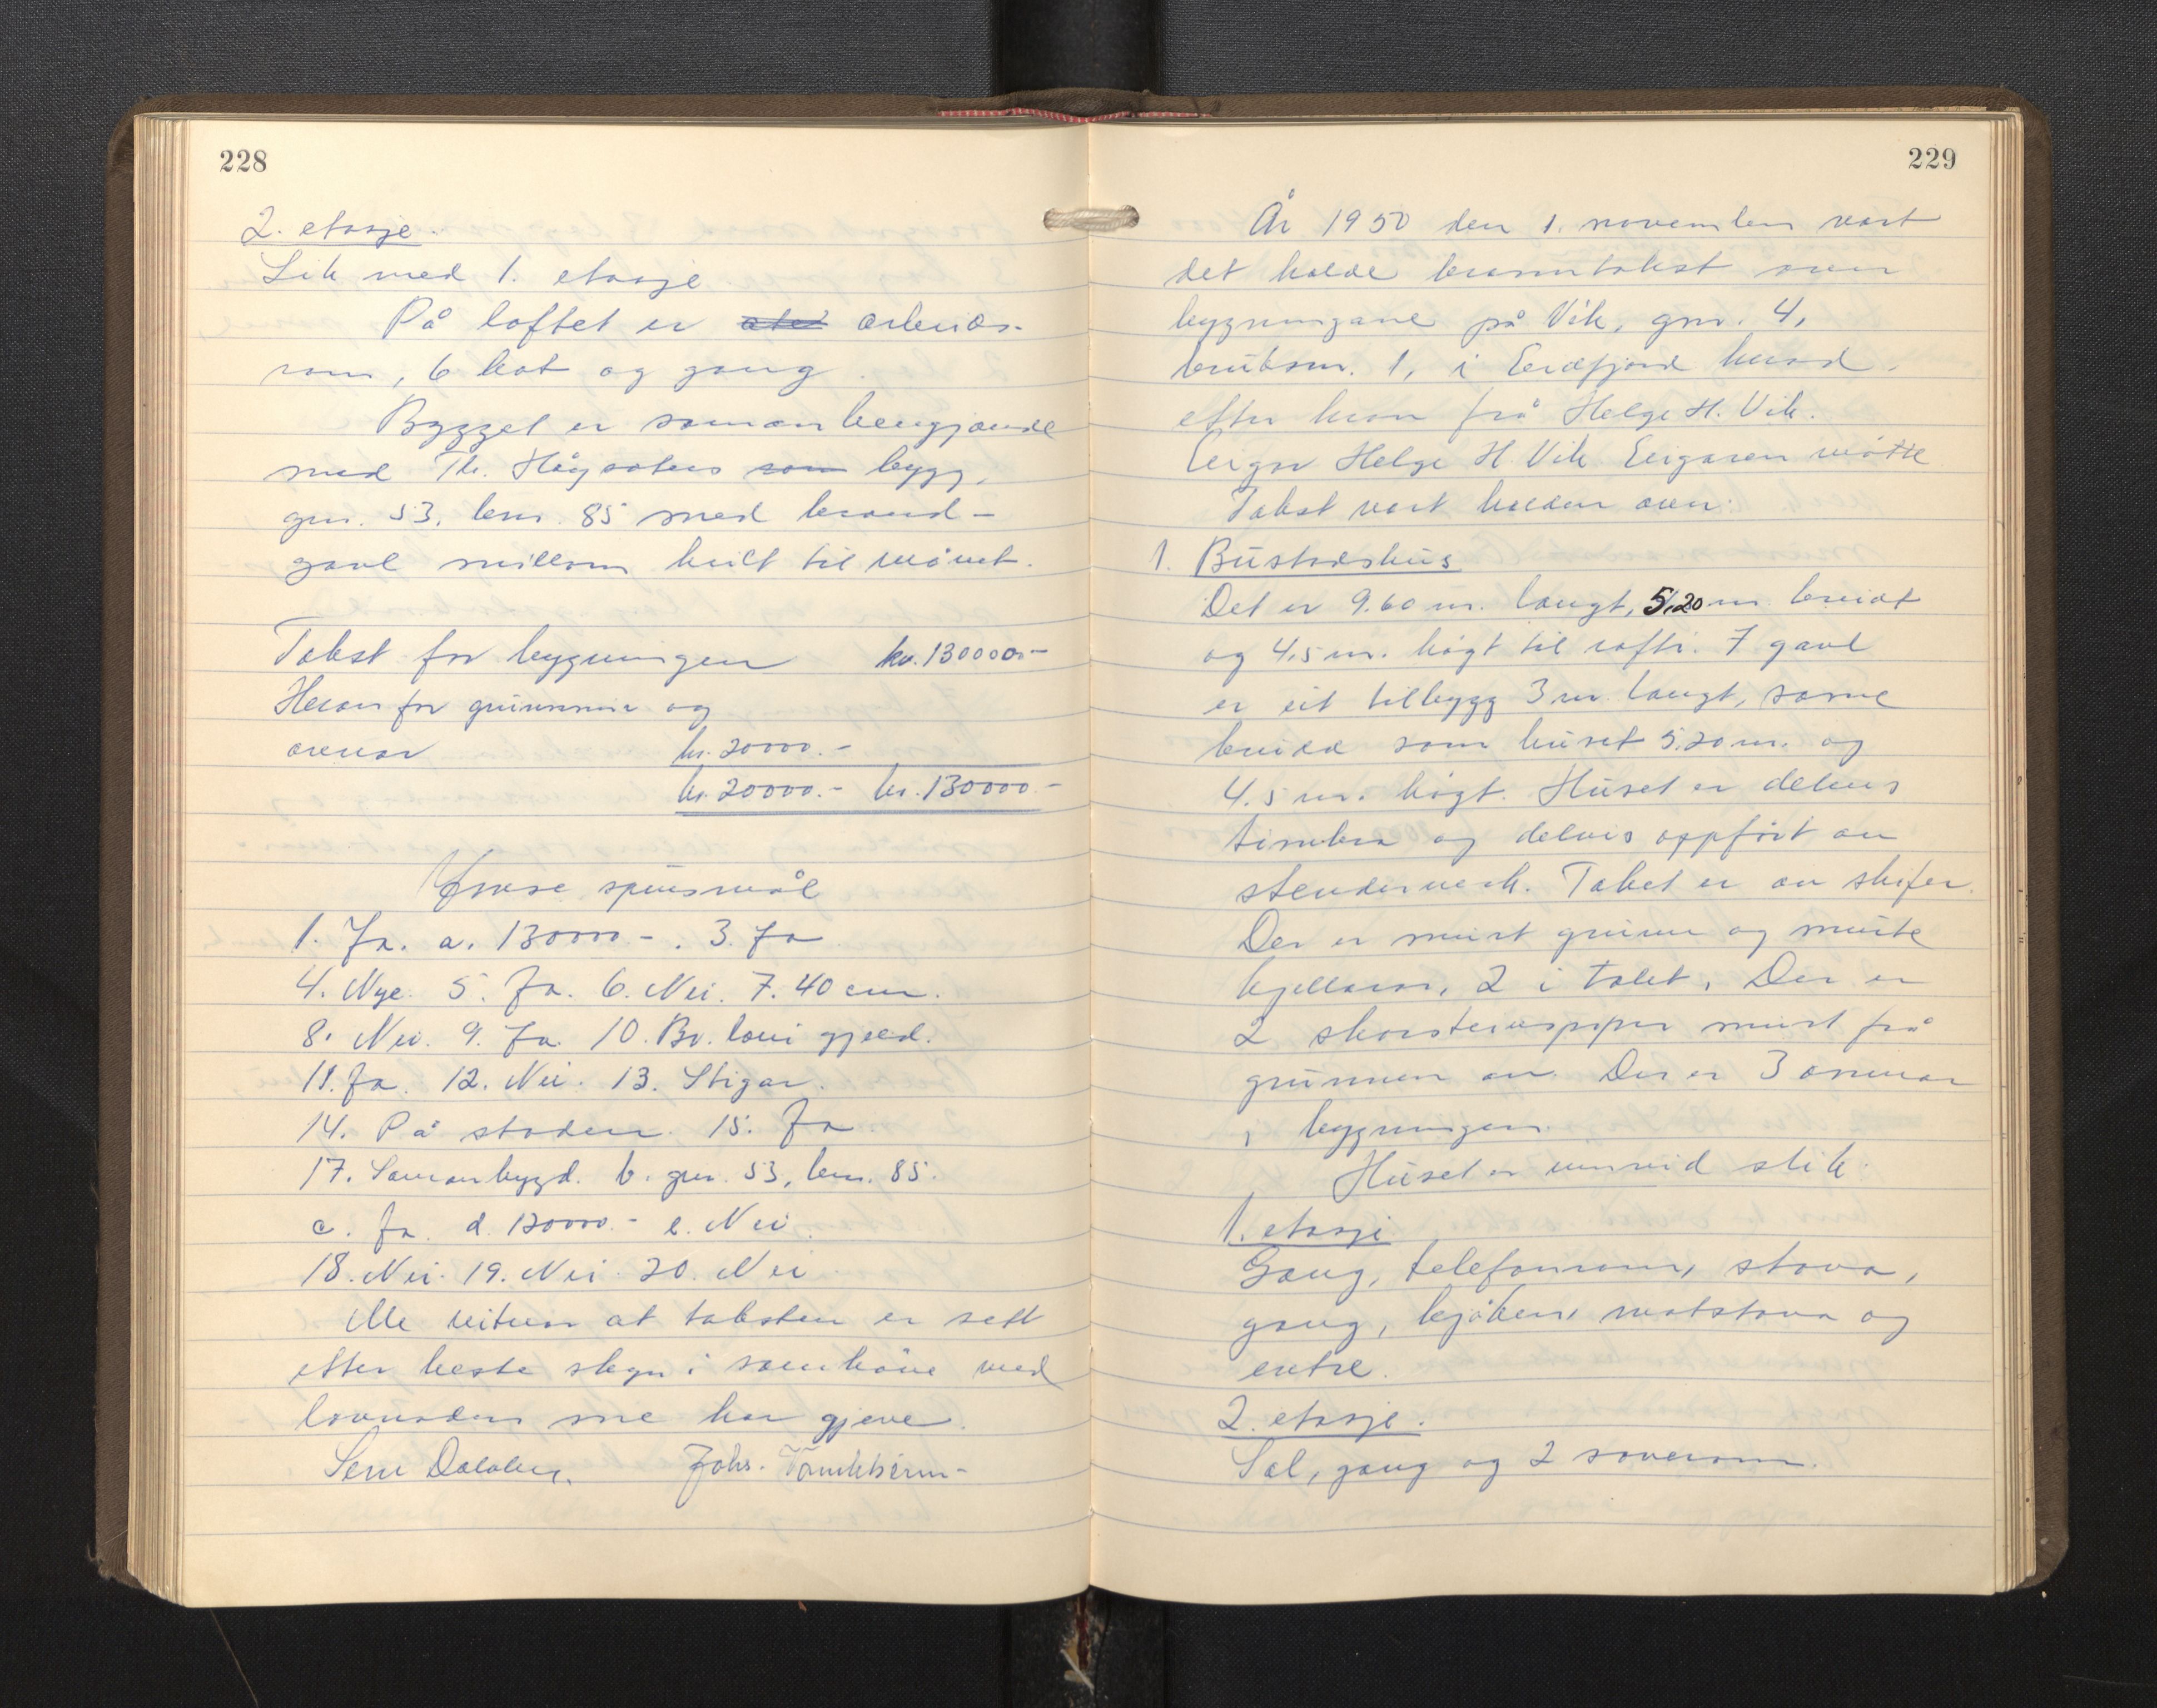 228
2. etasje.
Lik med 1. etasje
På loftet er arbeids-
rom, 6 kot og gang.
Bygget er samanhengjande
med Th. Hågåstens som bygg,
gnr. 53, bnr. 85 med brand-
gavl millom heilt til mønet.
Takst for bygningen kr. 130000.-
Herav for grunnmur og
omnar kr. 20000.-
kr. 20000.- kr. 130000.-
Ymse spursmål
1. Ja. a. 130000.-. 3. Ja
4. Nye. 5. Ja. 6. Nei. 7. 40 cm.
8. Nei. 9. Ja. 10. Br. lovi gjeld.
11. Ja. 12. Nei. 13. Stigar.
14. På staden. 15. Ja
17. Samanbygd. b. gnr. 53, bnr. 85.
c. Ja. d. 130000.- e. Nei.
18. Nei. 19. Nei. 20. Nei.
Me vitnar at taksten er sett
etter beste skyn i samhøve med
lovnaden me har gjeve.
Johs.
229
År 1950 den 1. november vart
det halde branntakst over
bygningane på Vik, gnr. 4,
bruksnr. 1, i Eidfjord herad,
etter krav frå Helge H. Vik.
Eigar Helge H. Vik. Eigaren møtte
Takst vart halden over:
1. Bustadshus
Det er 9.60 m. langt, 5,20 m. breidt
og 4,5 m. høgt til rafti. I gavl
er eit tilbygg 3 m. langt, same
breidd som huset 5.20 m. og
4.5 m. høgt. Huset er delvis
timbra og delvis oppført av
stenderverk. Taket er av skifer.
Der er murt grunn og murte
kjellarar, 2 i talet. Der er
2 skorsteinspiper murt frå
grunnen av. Der er 3 omnar
i bygningen.
Huset er innreid slik:
1. etasje
Gang, telefonrom, stova,
gang, kjøken, matstova og
entre.
2. etasje.
Sal, gang og 2 soverom.